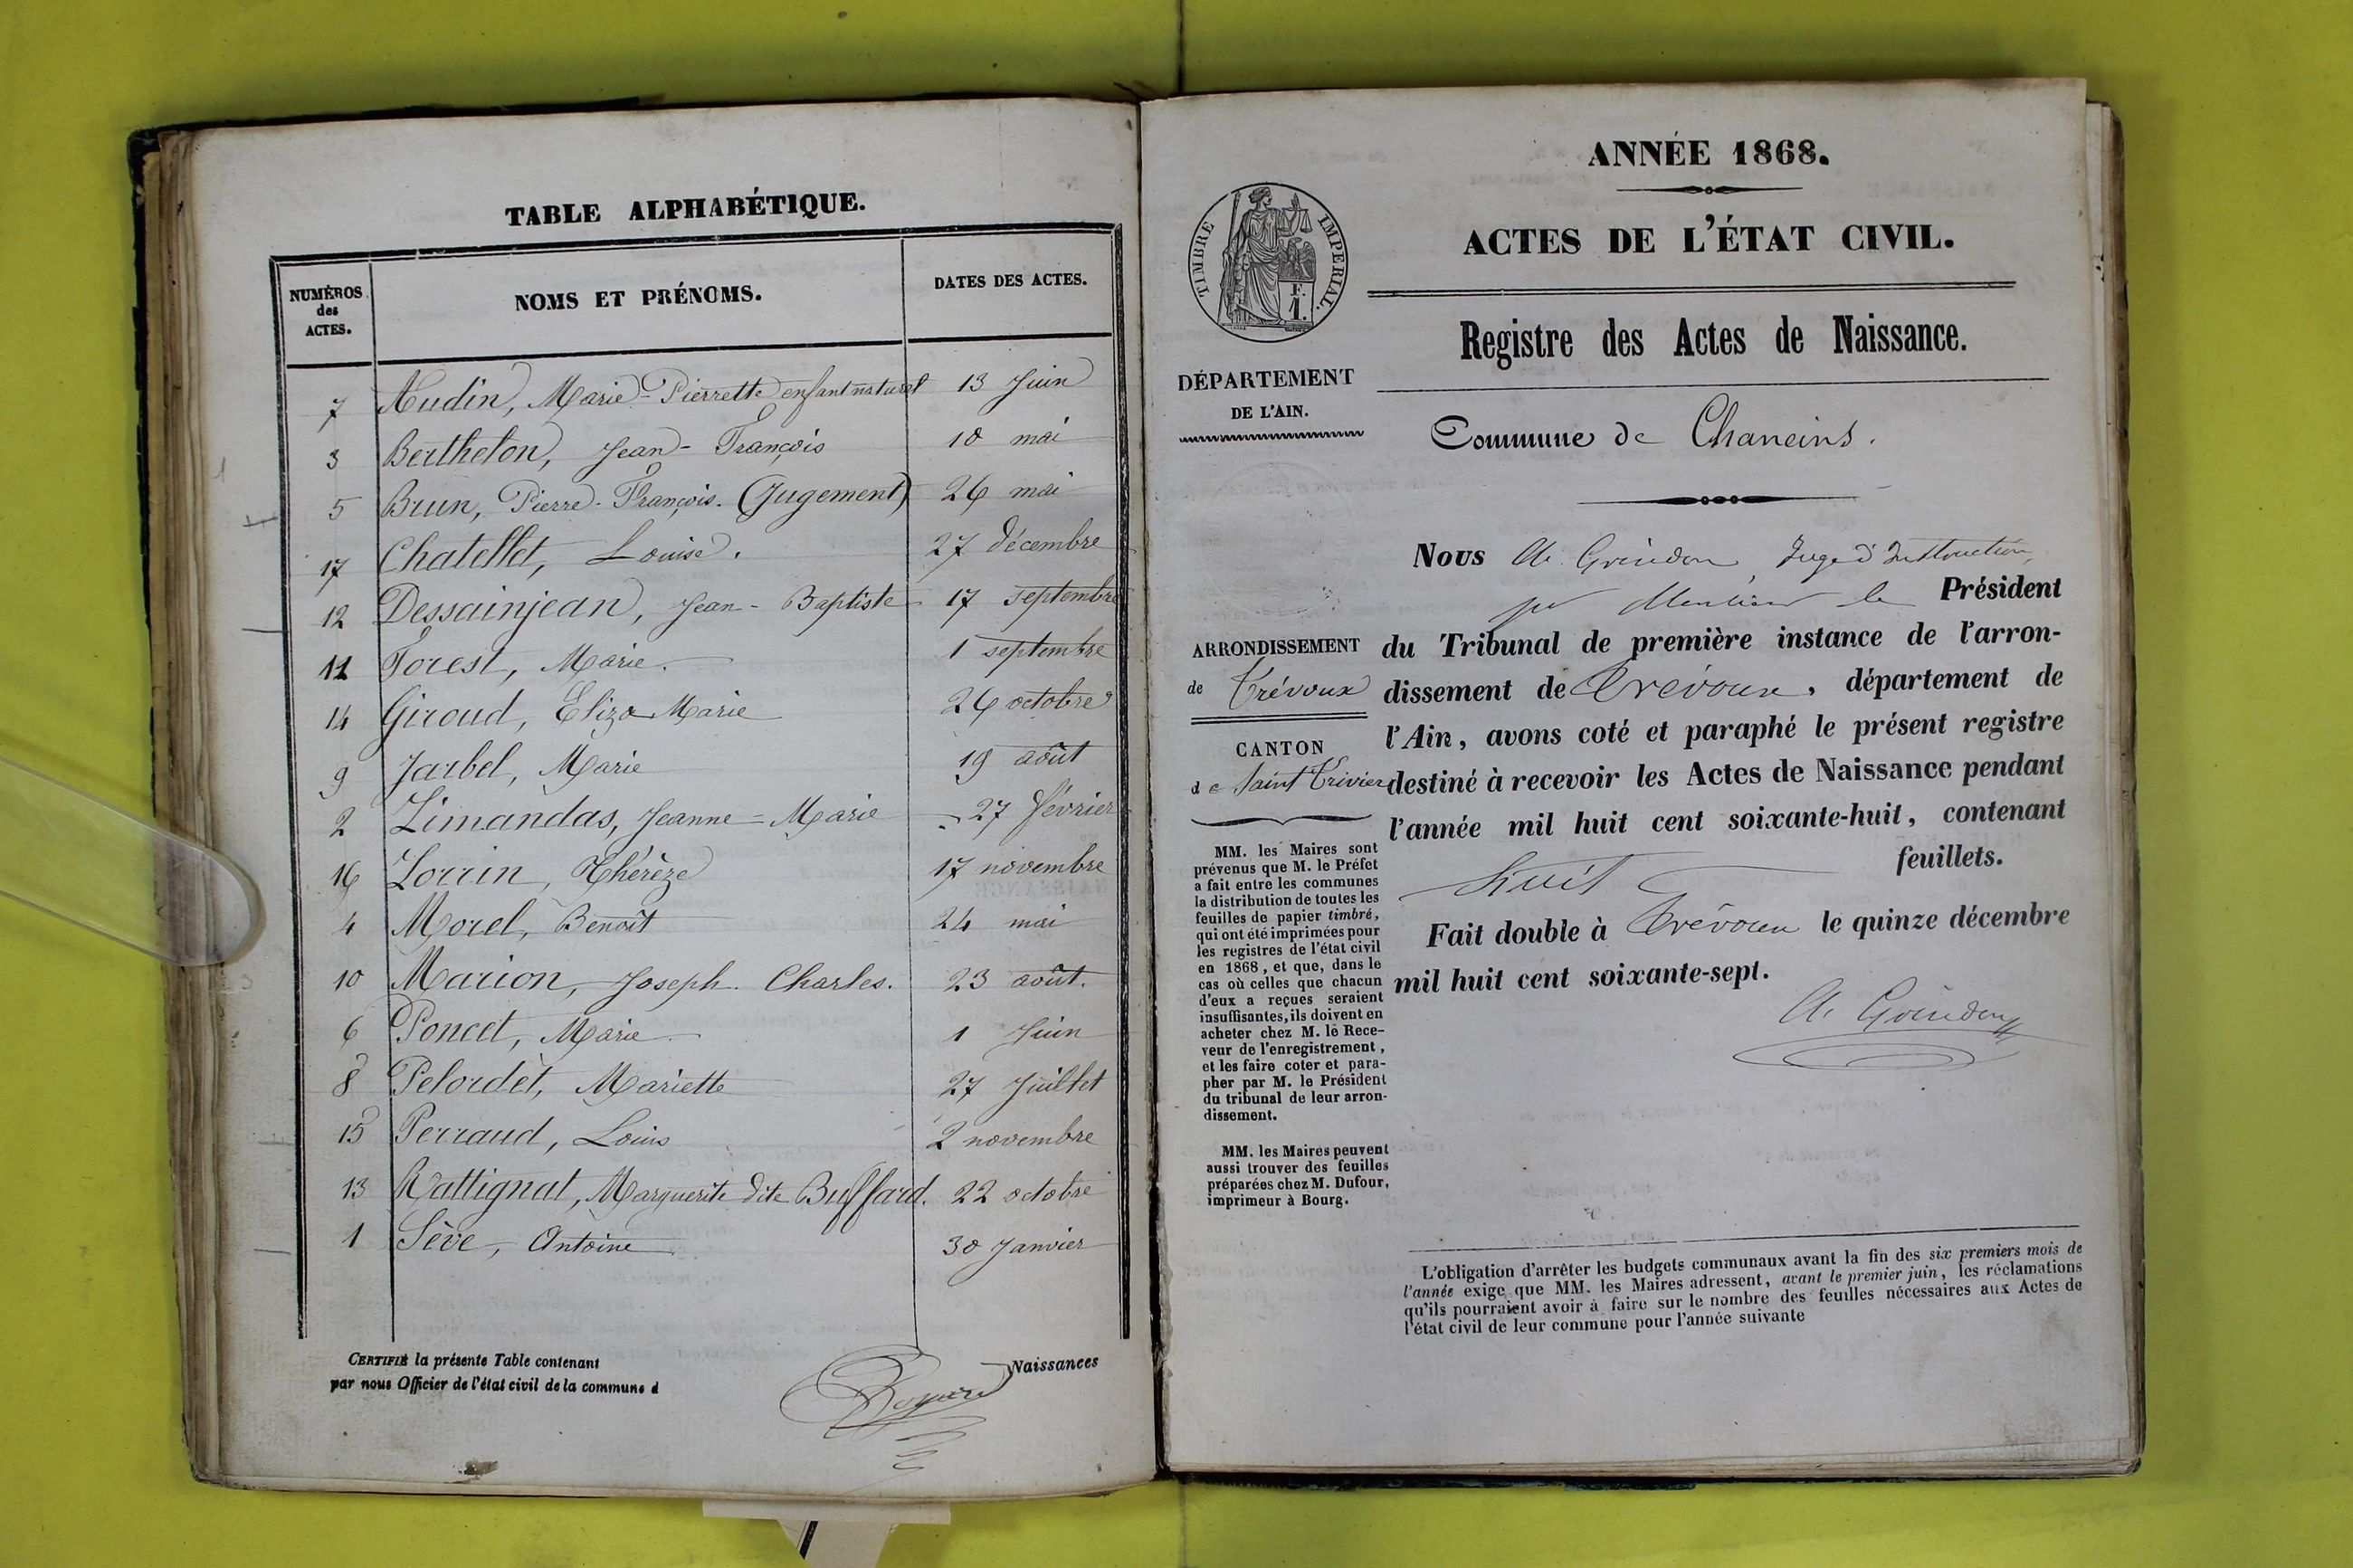 TABLE ALPHABÉTIQUE.
NUMÉROS des ACTES. NOMS ET PRÉNOMS. DATES DES ACTES.
7 Audin, Marie-Pierrette enfant naturel 13 Juin
3 Berthelon, Jean-François 10 mai
5 Brun, Pierre-François. (Jugement) 26 mai
17 Chatellet, Louise. 27 décembre
12 Dessainjean, Jean-Baptiste 17 septembre
11 Forest, Marie. 1 septembre
14 Giroud, Eliza Marie 26 octobre
9 Jarbel, Marie 19 août
2 Limandas, Jeanne-Marie 27 février
16 Lorrin, Thérèze 17 novembre
4 Morel, Benoît 24 mai
10 Marion, Joseph Charles. 23 août.
6 Poncet, Marie 1 Juin
8 Pelordet, Mariette 27 Juillet
15 Perraud, Louis 2 novembre
13 Rattignat, Marguerite dite Buffard. 22 octobre
1 Sève, Antoine 30 Janvier
CERTIFIÉ la présente Table contenant Naissances
par nous Officier de l'état civil de la commune d
ANNÉE 1868.
ACTES DE L'ÉTAT CIVIL.
Registre des Actes de Naissance.
TIMBRE IMPERIAL.
F.
1.
DÉPARTEMENT
DE L'AIN.
Commune de Chaneins.
ARRONDISSEMENT
de Trévoux
CANTON
de Saint Trivier
MM. les Maires sont
prévenus que M. le Préfet
a fait entre les communes
la distribution de toutes les
feuilles de papier timbré,
qui ont été imprimées pour
les registres de l'état civil
en 1868, et que, dans le
cas où celles que chacun
d'eux a reçues seraient
insuffisantes, ils doivent en
acheter chez M. le Rece-
veur de l'enregistrement,
et les faire coter et para-
pher par M. le Président
du tribunal de leur arron-
dissement.
MM. les Maires peuvent
aussi trouver des feuilles
préparées chez M. Dufour,
imprimeur à Bourg.
Nous A. Grindon, Juge d'Instruction,
le Président
du Tribunal de première instance de l'arron-
dissement de Trévoux, département de
l'Ain, avons coté et paraphé le présent registre
destiné à recevoir les Actes de Naissance pendant
l'année mil huit cent soixante-huit, contenant
huit feuillets.
Fait double à Trévoux le quinze décembre
mil huit cent soixante-sept.
A. Grindon
L'obligation d'arrêter les budgets communaux avant la fin des six premiers mois de
l'année exige que MM. les Maires adressent, avant le premier juin, les réclamations
qu'ils pourraient avoir à faire sur le nombre des feuilles nécessaires aux Actes de
l'état civil de leur commune pour l'année suivante